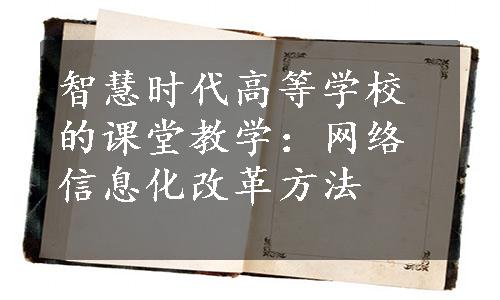 智慧时代高等学校
的课堂教学：网络
信息化改革方法